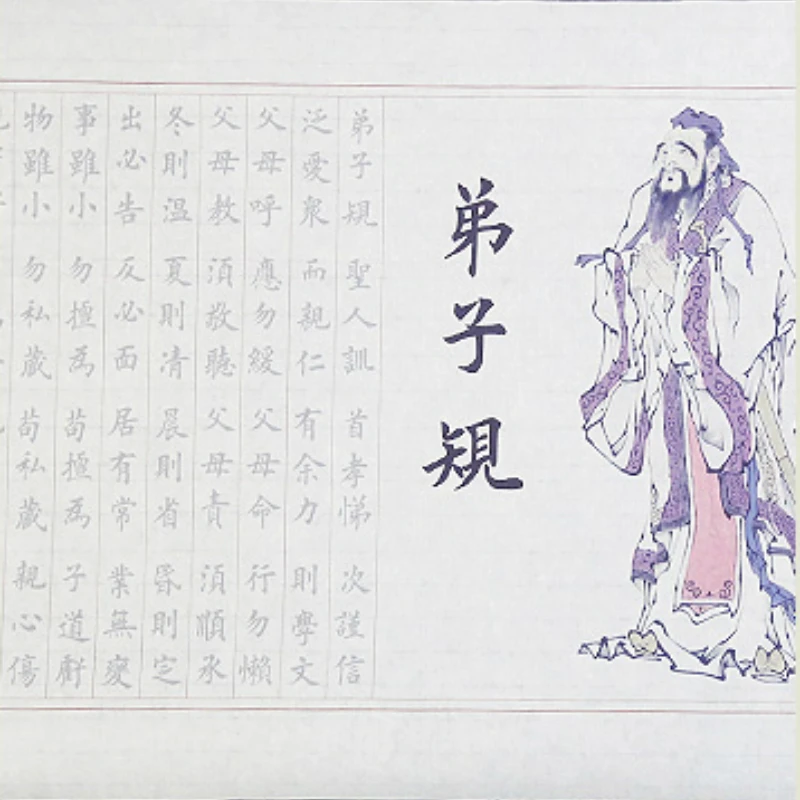 弟子規
弟子規 聖人訓 首孝悌 次謹信
泛愛衆 而親仁 有余力 則學文
父母呼 應勿緩 父母命 行勿懶
父母教 須敬聽 父母責 須順承
冬則温 夏則凊 晨則省 昏則定
出必告 反必面 居有常 業無變
事雖小 勿擅為 苟擅為 子道虧
物雖小 勿私藏 苟私藏 親心傷